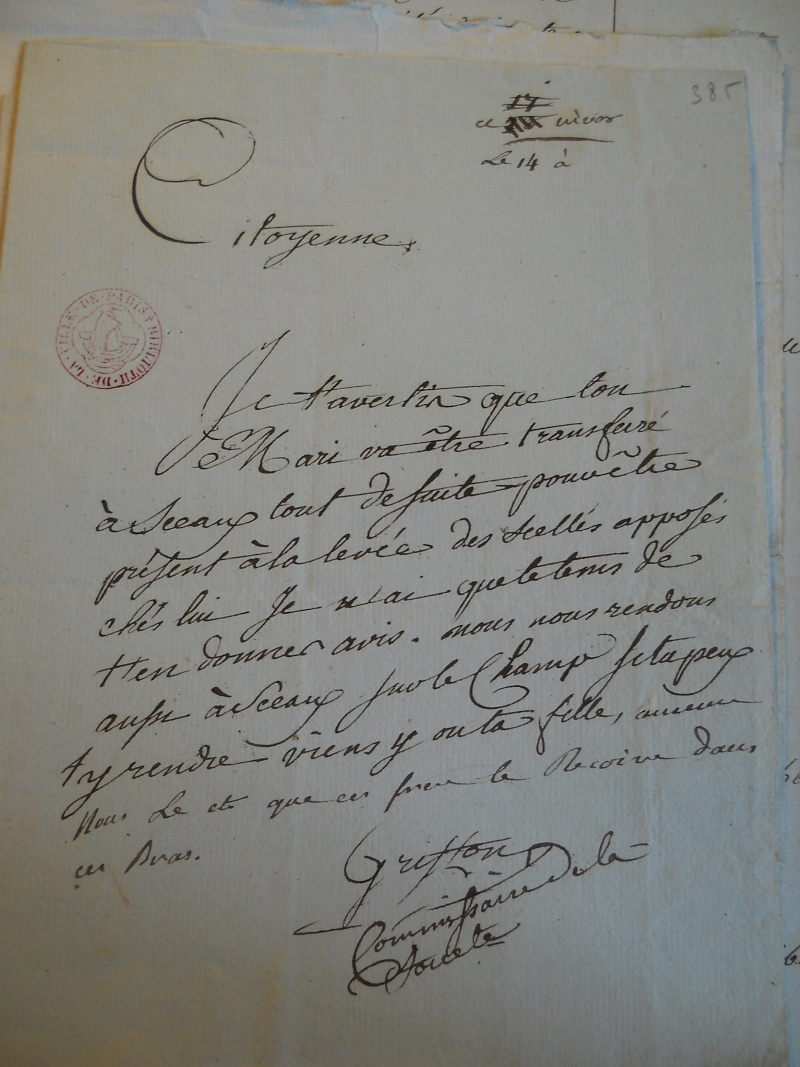 385
17
ce nivos
Le 14 à
Citoyenne,
BIBLIOTH. DE LA VILLE DE PARIS
Je t'avertis que ton
Mari va être transferé
à Sceaux tout de suite pour être
présent à la levée des scellés apposés
chés lui Je n'ai que le tems de
t'en donner avis. nous nous rendons
aussi à Sceaux sur le Champ si tu peux
t'y rendre viens y ou ta fille,
Nous Le que ces le Recoive dans
ces Bras.
Griffon
Commissaire de la